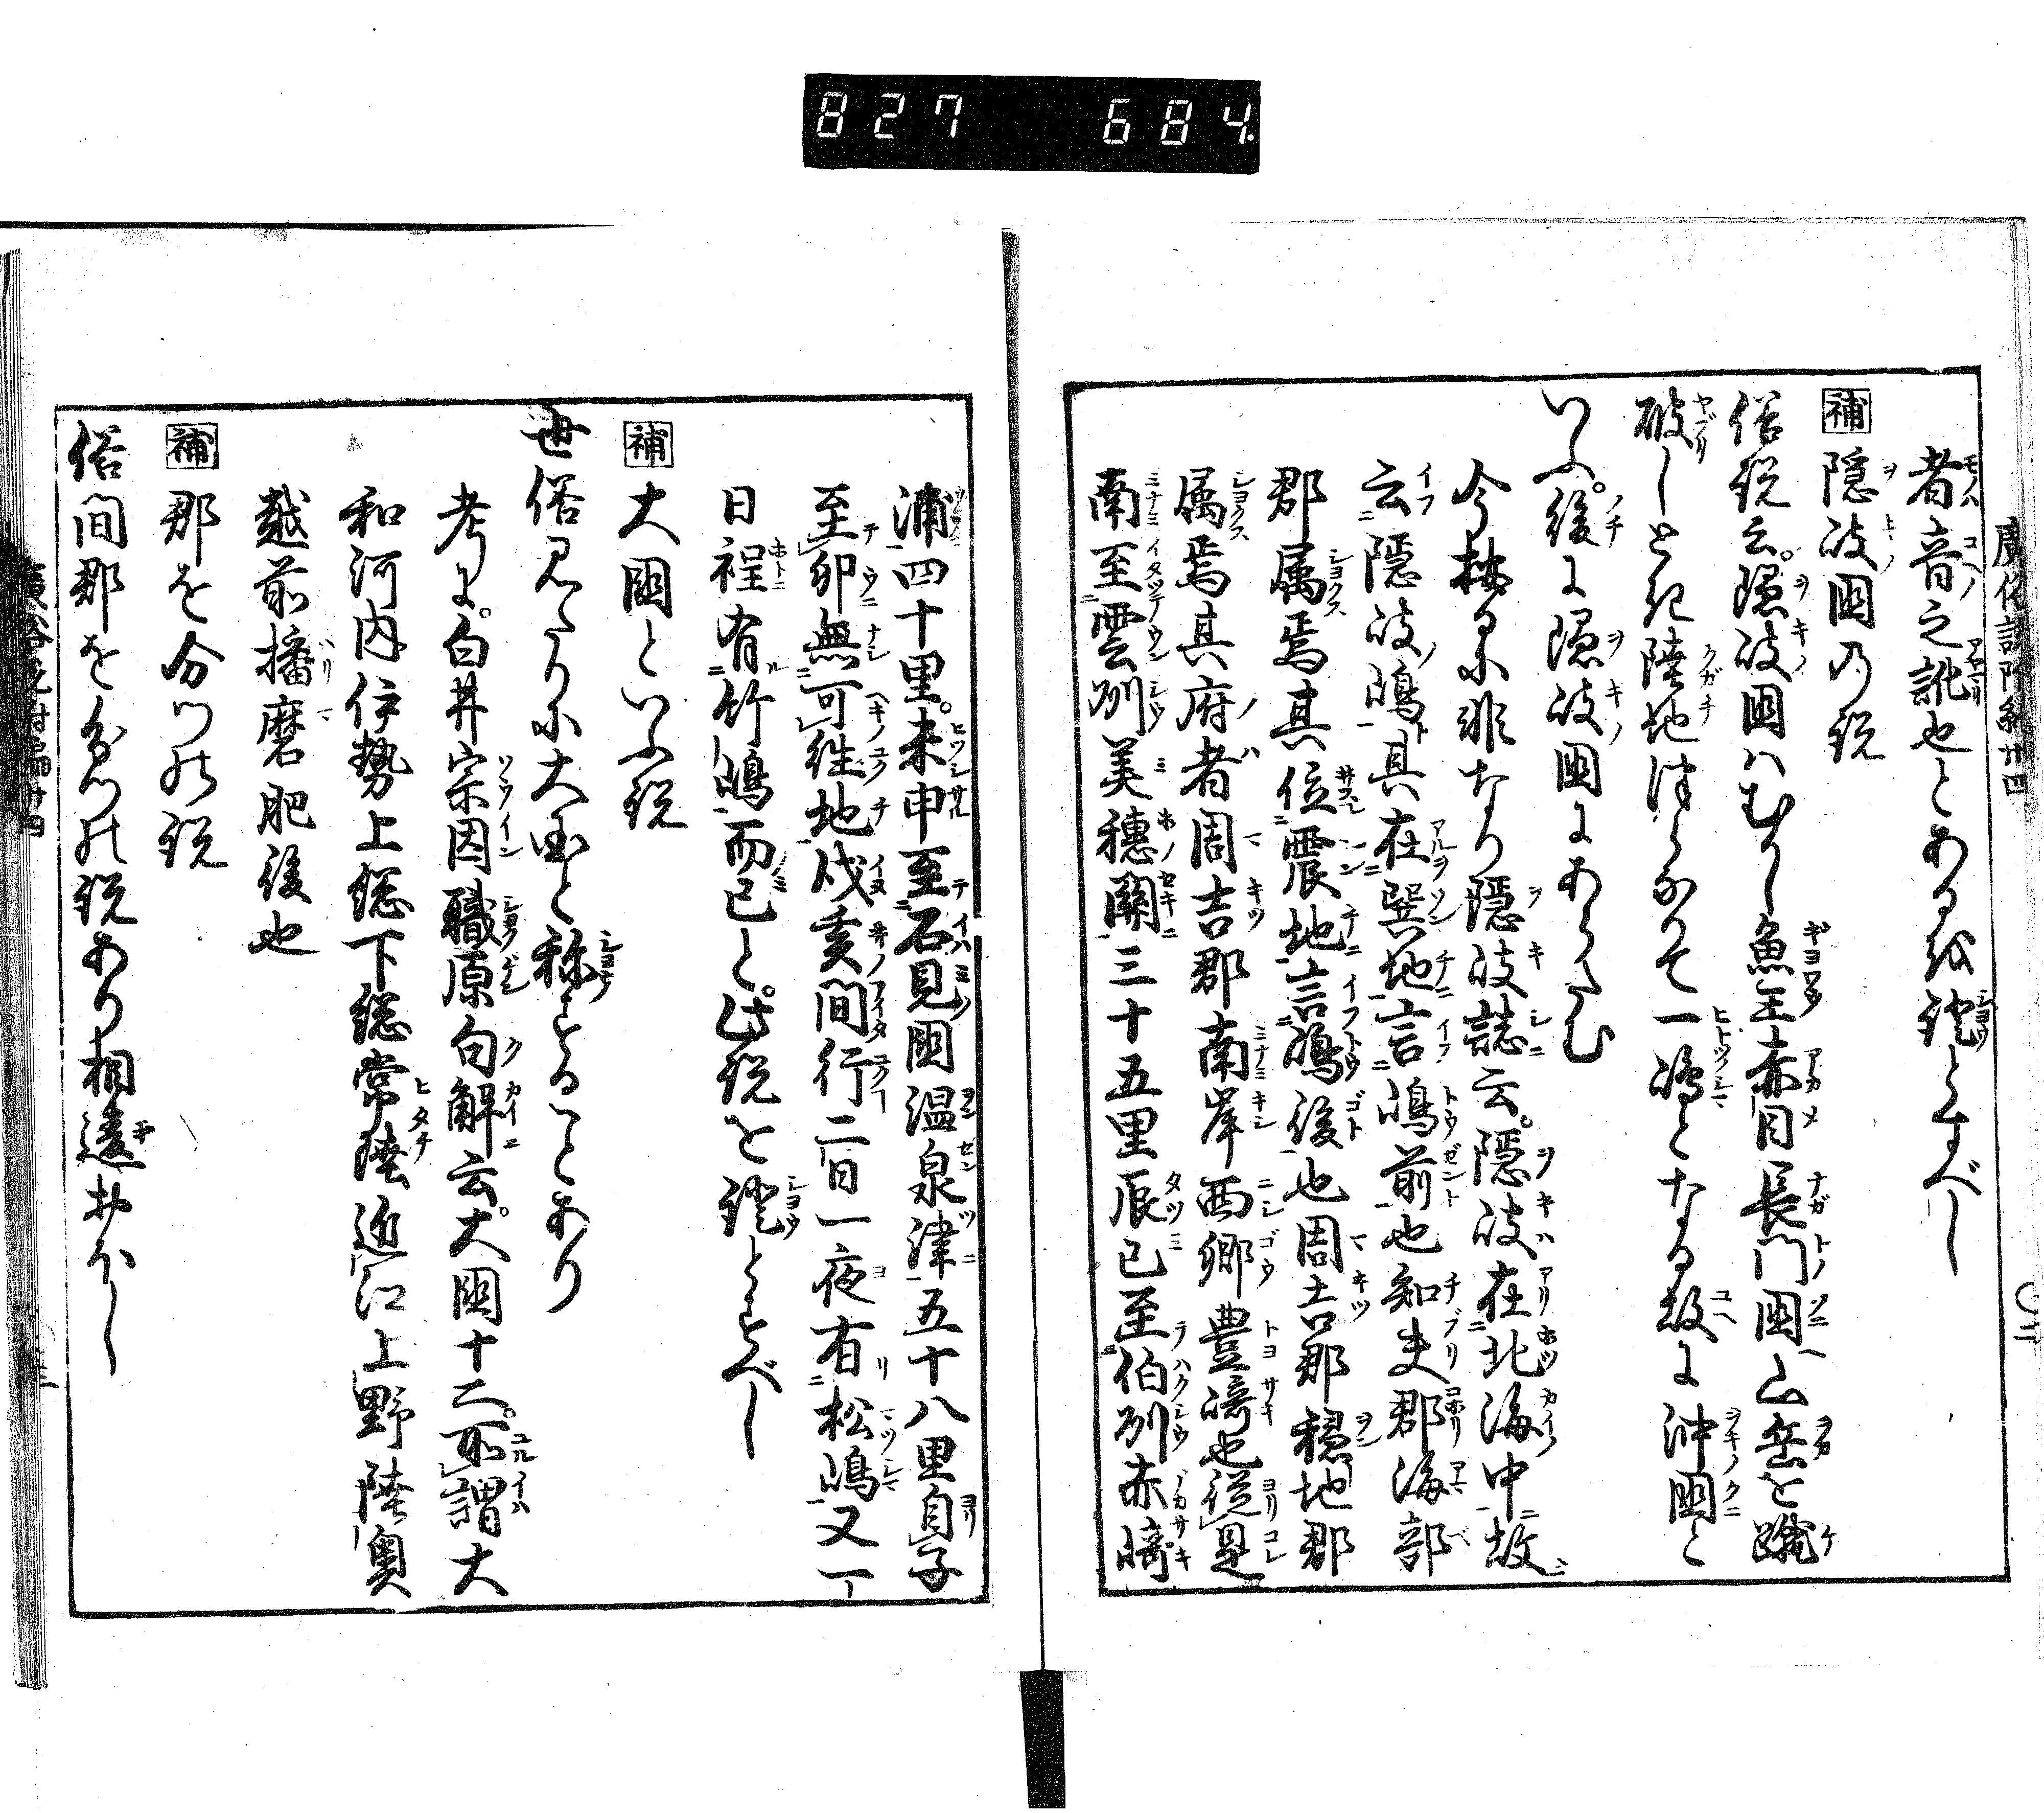 827 684
者音之訛也とあるを證とすべし
補 隠岐国乃説
俗説云。隠岐国ハむかし魚王赤目長門国ノ山岳を蹴
破しとき陸地はなれて一嶋となる故に沖国と
いふ。後に隠岐国にあらたむ
今按るに非なり隠岐誌云。隠岐在北海中故
云隠岐嶋其在巽地言嶋前也知夫郡海部
郡属焉其位震地言嶋後也周吉郡穏地郡
属焉其府者周吉郡南岸西郷豊﨑也従是
南至雲州美穂關三十五里辰巳至伯州赤﨑
浦四十里。未申至石見国温泉津五十八里自子
至卯無可往地戌亥間行二日一夜有松嶋又一
日程有竹嶋而已と。此説を證とすべし
補 大国といふ説
世俗みたりに大国と称することあり
考に。白井宗因職原句解云。大国十二。所謂大
和河内伊勢上総下総常陸近江上野陸奥
越前播磨肥後也
補 郡を分つの説
俗間郡を分つの説あり相違おほし